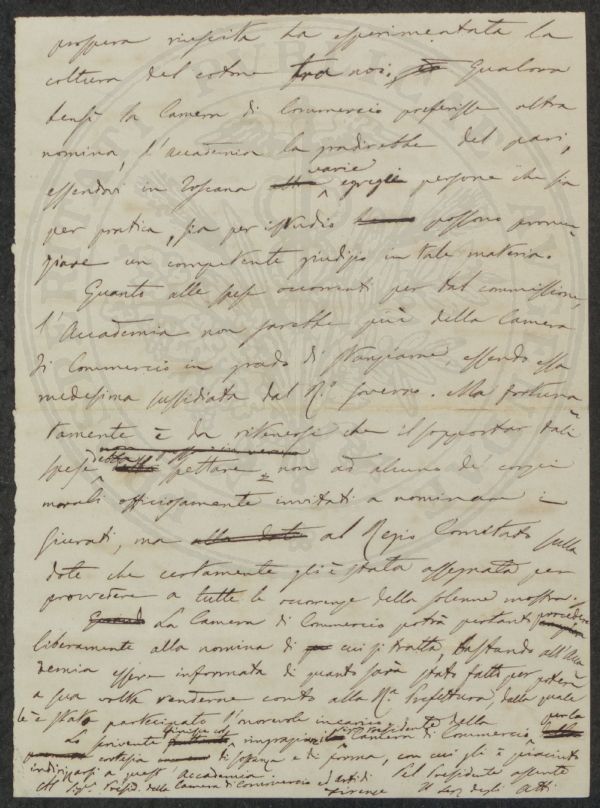 prospera riescita ha esperimentata la
coltura del cotone tra noi. Qualora
bensì la Camera di Commercio preferisse altra
nomina, l'accademia la gradirebbe del pari,
essendovi in Toscana varie egregie persone che sia
per pratica, sia per istudio possono pronun-
ziare un competente giudizio in tale materia.
Quanto alle spese occorrenti per tal commissione,
l'Accademia non sarebbe più della Camera
di Commercio in grado di stanziarne, essendo essa
medesima sussidiata dal R.º Governo. Ma fortuna
tamente è da ritenersi che il sopportar tali
spese debba spettare, non ad alcuno de' corpi
morali officiosamente invitati a nominare i
Giurati, ma alla dote al Regio Comitato sulla
dote che certamente gli è stata assegnata per
provvedere a tutte le occorrenze della solenne mostra.
La Camera di Commercio potrà pertanto procedere
liberamente alla nomina di cui si tratta, bastando all'Acca
demia essere informata di quanto sarà stato fatto per poterne
a sua volta renderne conto alla R.ª Prefettura, dalla quale
le è stato partecipato l'onorevole incarico
Lo scrivente ringrazia il Presidente della Camera di Commercio per la
cortesia di sostanza e di forma, con cui gli è piaciuto
indirizzarsi a quest'Accademia.
Al Sig.r Presid. della Camera di Commercio ed Arti di Firenze
Pel Presidente assente
Il Seg. degli Atti